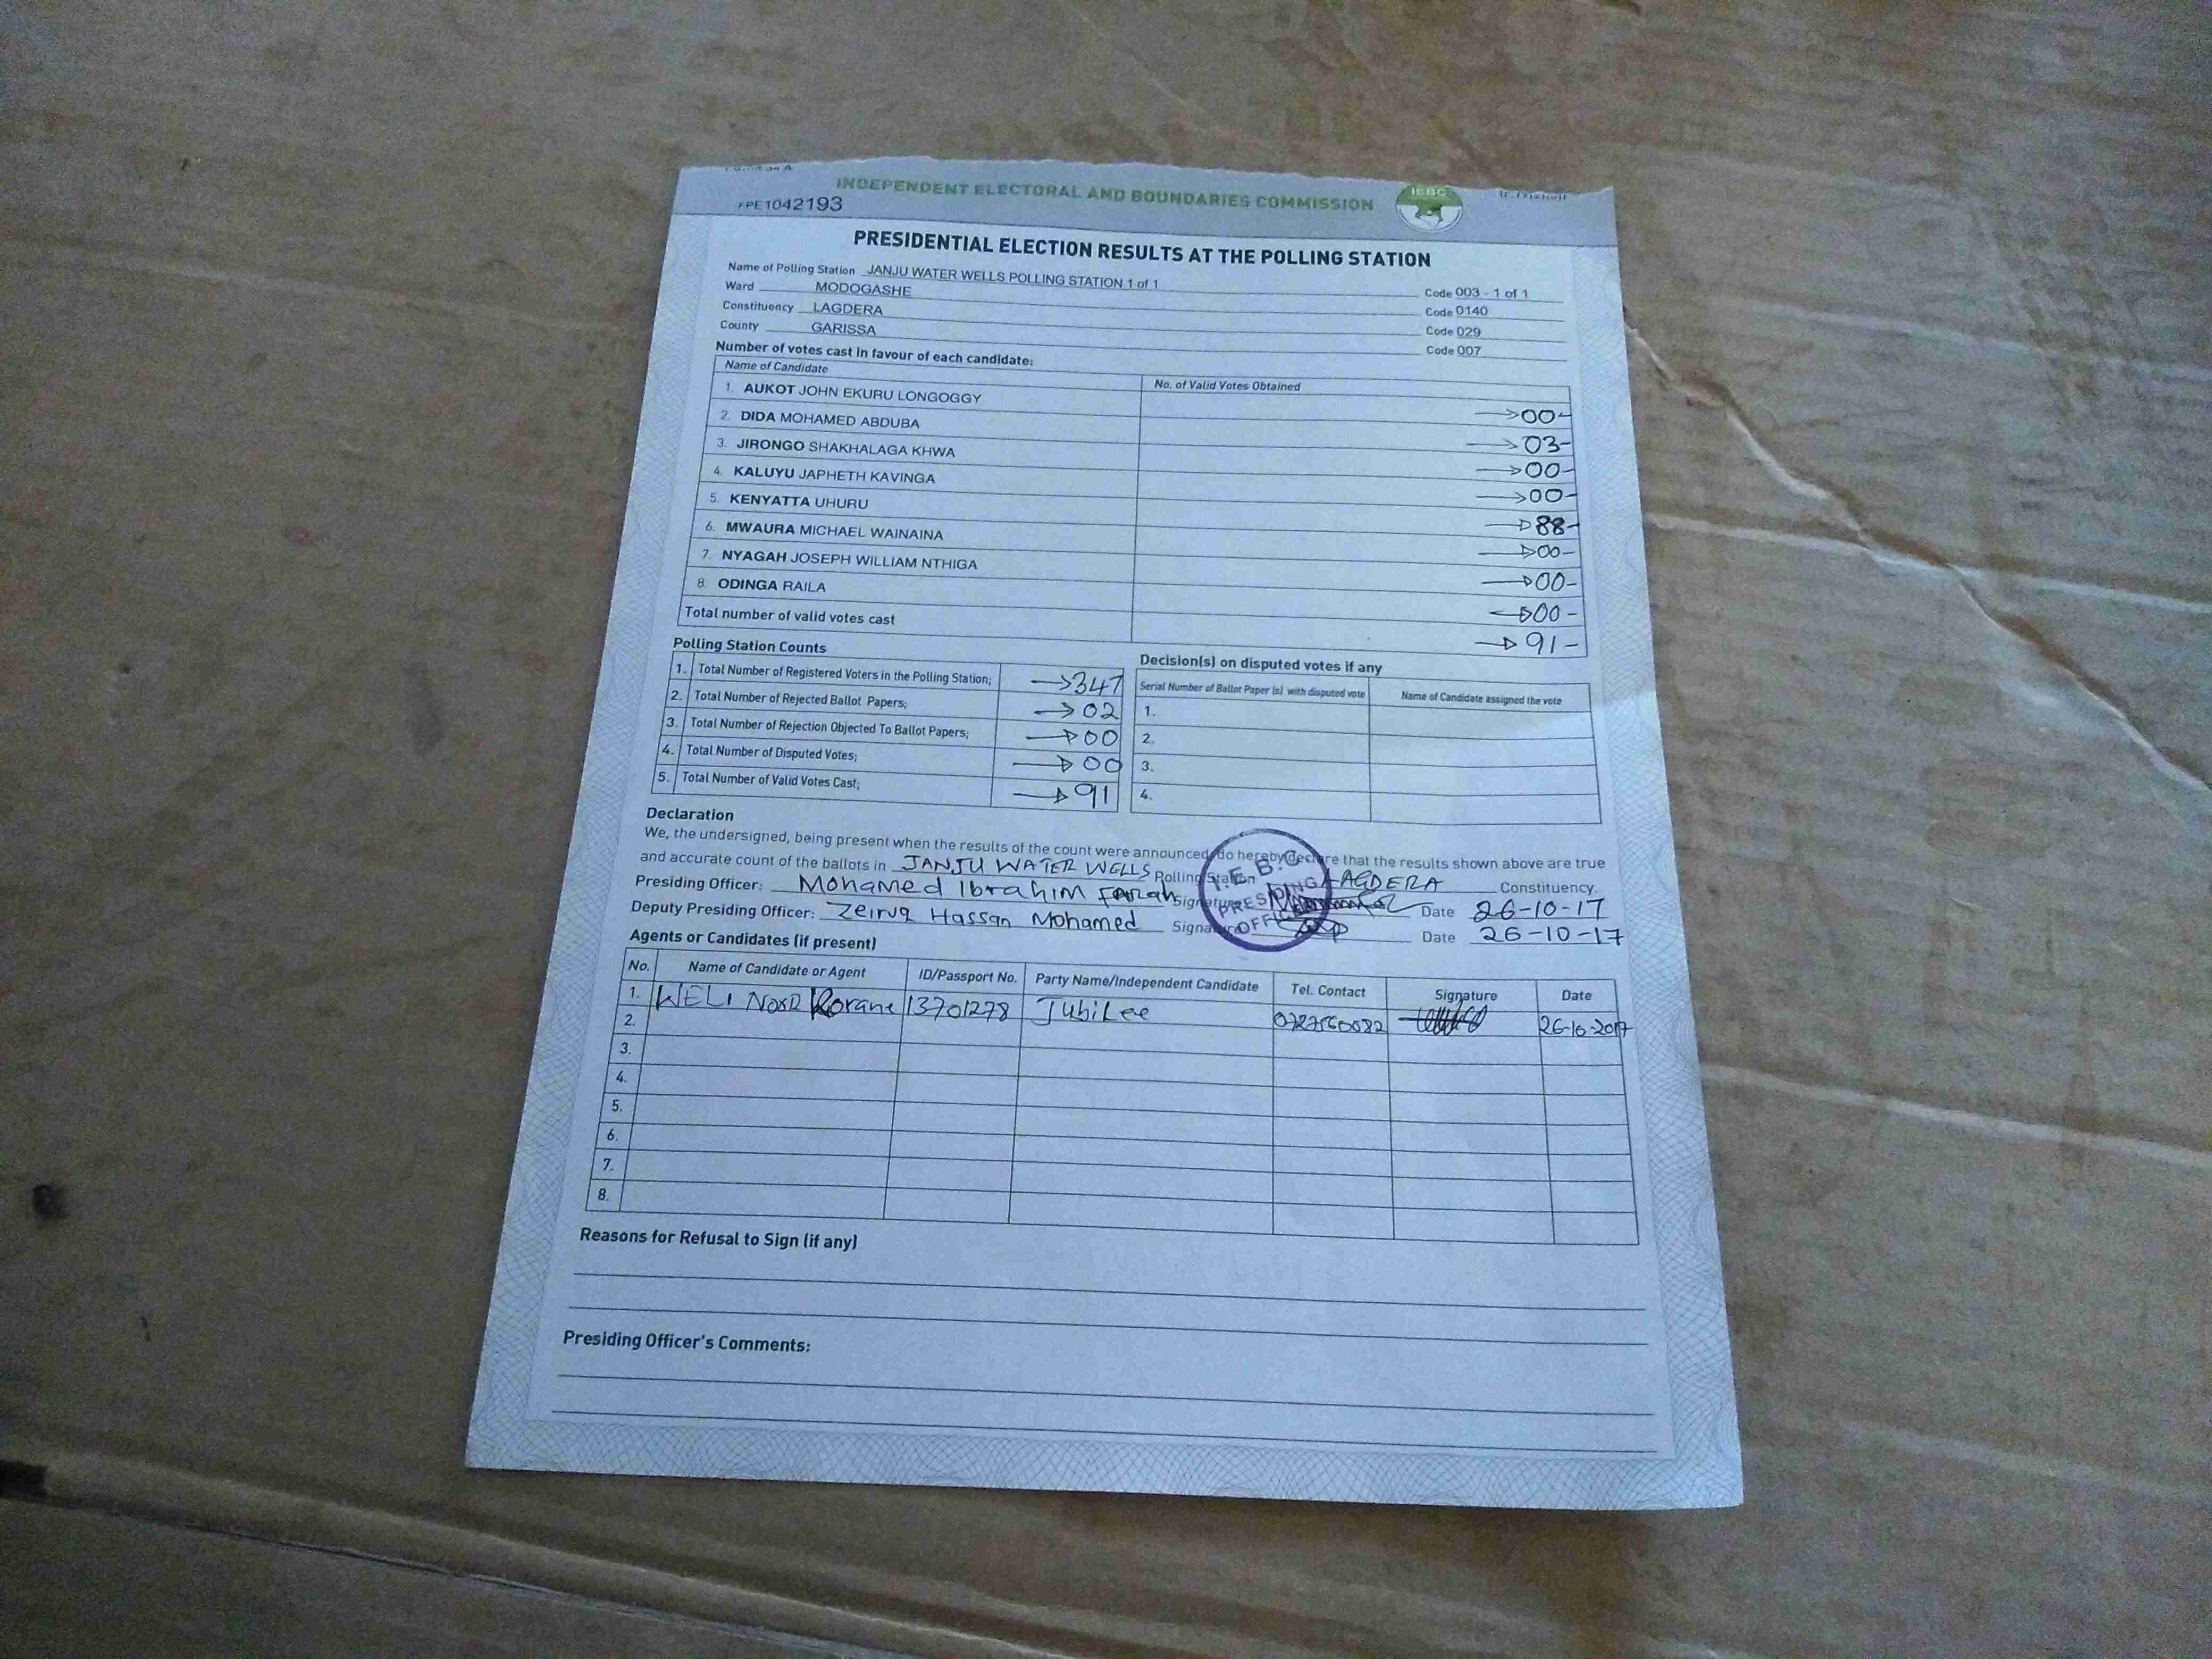 INDEPENDENT ELECTORAL AND BOUNDARIES COMMISSION
IEBC
PE1042193
PRESIDENTIAL ELECTION RESULTS AT THE POLLING STATION
Name of Polling Station JANJU WATER WELLS POLLING STATION 1 of 1 Code 003 - 1 of 1
Ward MODOGASHE Code 0140
Constituency LAGDERA Code 029
County GARISSA Code 007
Number of votes cast in favour of each candidate:
Name of Candidate No. of Valid Votes Obtained
1. AUKOT JOHN EKURU LONGOGGY →00-
2. DIDA MOHAMED ABDUBA →03-
3. JIRONGO SHAKHALAGA KHWA →00-
4. KALUYU JAPHETH KAVINGA →00-
5. KENYATTA UHURU →88-
6. MWAURA MICHAEL WAINAINA →00-
7. NYAGAH JOSEPH WILLIAM NTHIGA →00-
8. ODINGA RAILA →00-
Total number of valid votes cast →91-
Polling Station Counts
1. Total Number of Registered Voters in the Polling Station; →347
2. Total Number of Rejected Ballot Papers; →02
3. Total Number of Rejection Objected To Ballot Papers; →00
4. Total Number of Disputed Votes; →00
5. Total Number of Valid Votes Cast; →91
Decision(s) on disputed votes if any
Serial Number of Ballot Paper (s) with disputed vote Name of Candidate assigned the vote
1.
2.
3.
4.
Declaration
We, the undersigned, being present when the results of the count were announced, do hereby declare that the results shown above are true
and accurate count of the ballots in JANJU WATER WELLS Polling Station LAGDERA Constituency.
Presiding Officer: Mohamed Ibrahim Farah Signature Date 26-10-17
Deputy Presiding Officer: Zeirua Hassan Mohamed Signature Date 26-10-17
I.E.B.C
PRESIDING
OFFICER
Agents or Candidates (if present)
No. Name of Candidate or Agent ID/Passport No. Party Name/Independent Candidate Tel. Contact Signature Date
1. WELI NOOR Korane 13701278 JubiLee 26-10-2017
2.
3.
4.
5.
6.
7.
8.
Reasons for Refusal to Sign (if any)
Presiding Officer's Comments: